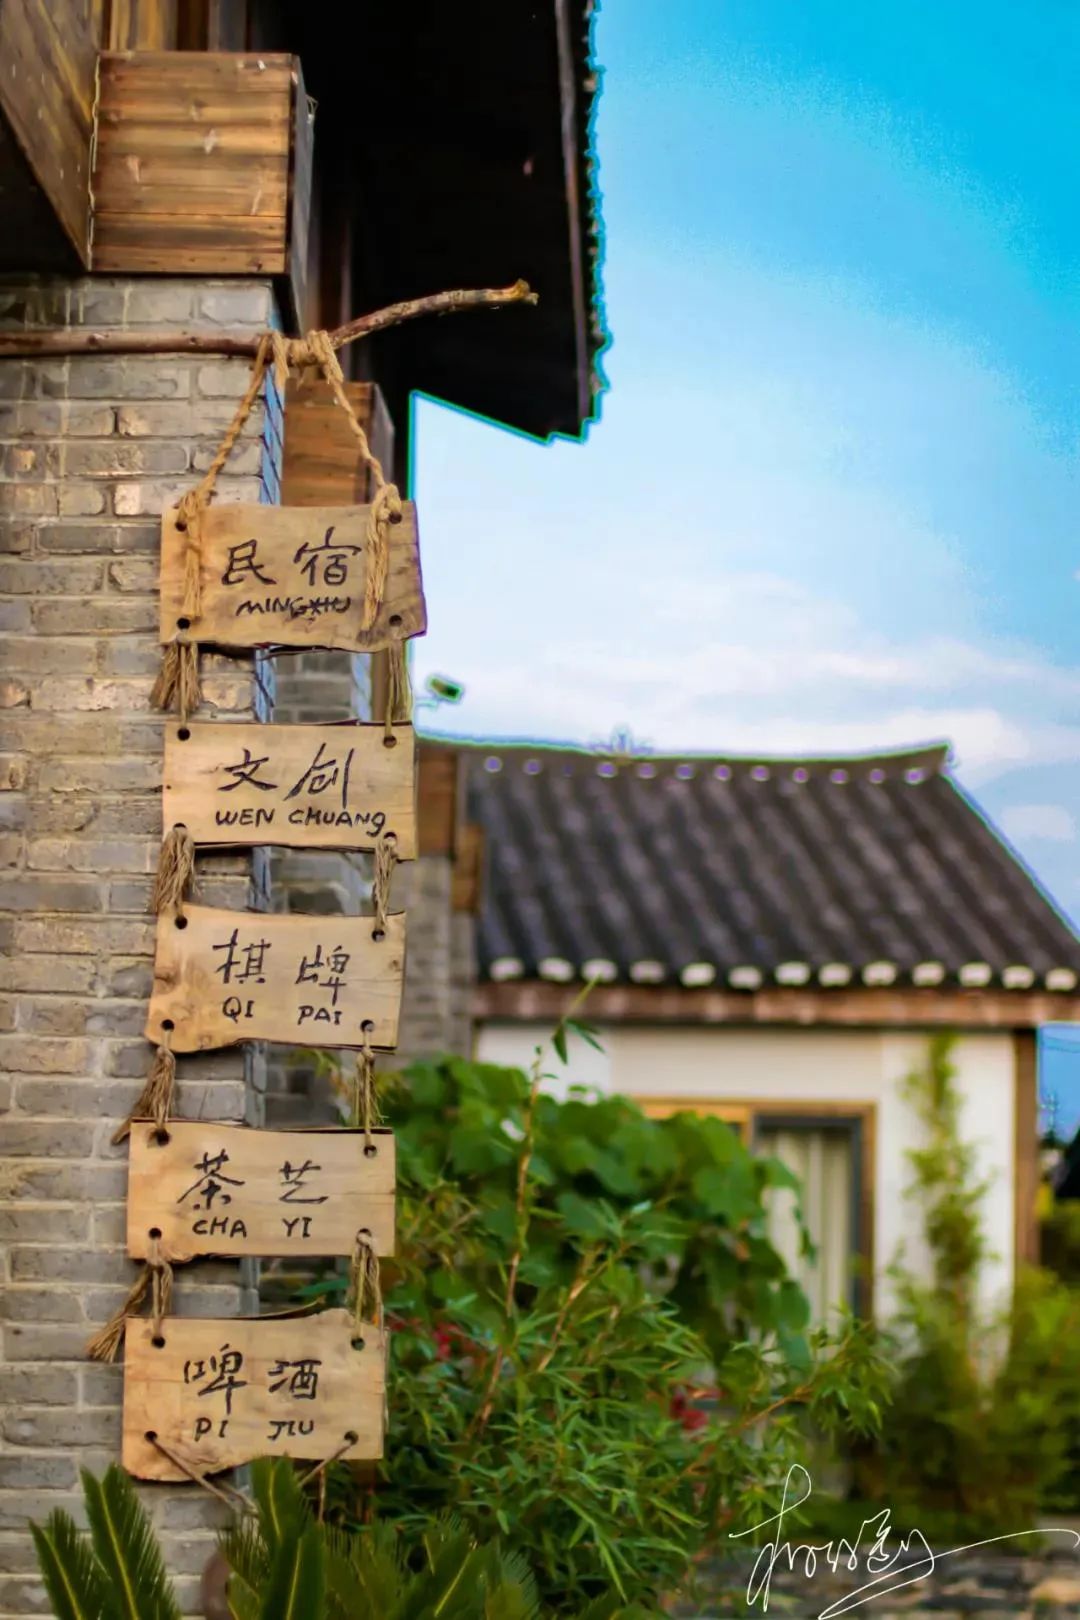 民宿
MINGXIU
文创
WEN CHUANG
棋牌
QI PAI
茶艺
CHA YI
啤酒
PI JIU